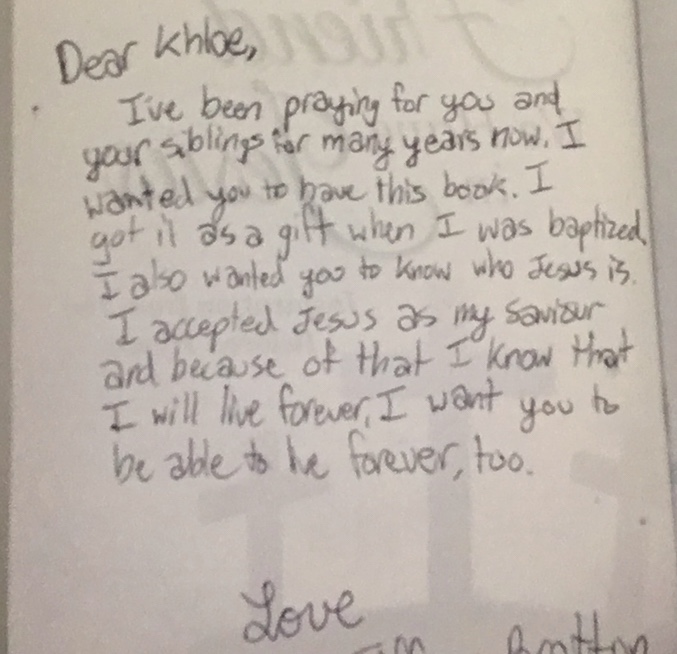 Dear Khloe,
I've been praying for you and
your siblings for many years now. I
wanted you to have this book. I
got it as a gift when I was baptized.
I also wanted you to know who Jesus is.
I accepted Jesus as my Saviour
and because of that I know that
I will live forever. I want you to
be able to live forever, too.
Love